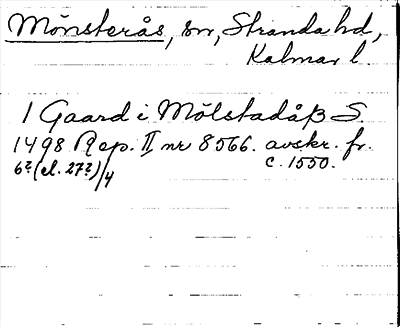 Mönsterås, sn, Stranda hd,
Kalmar l.
1 Gaard i Mölstadåß S.
1498 Rep. II nr 8566. avskr. fr.
6?(el. 27?)/4 c. 1550.